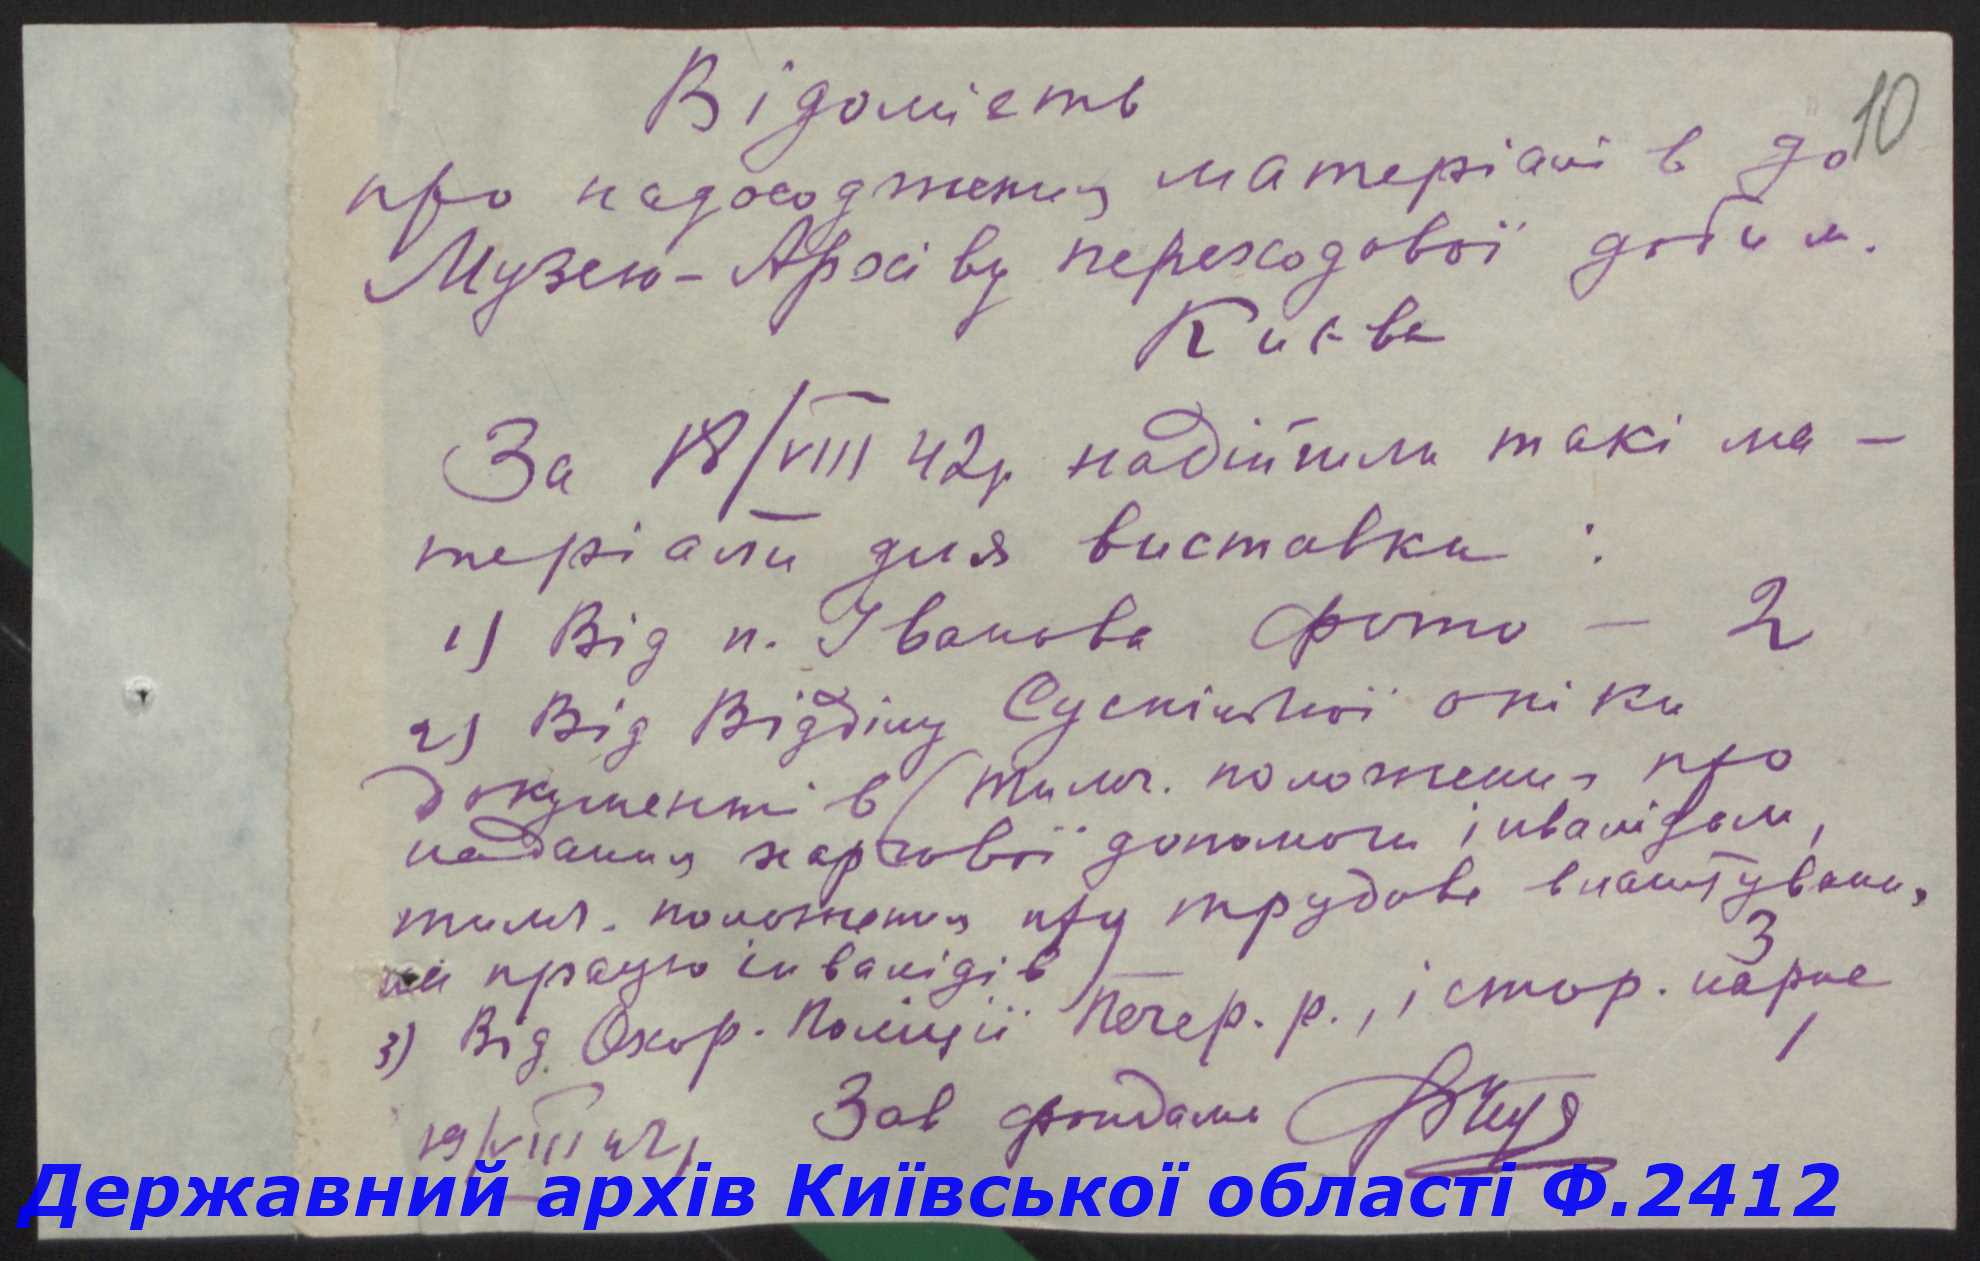 10
Відомість
про надоходження матеріалів до
Музею-Архіву переходової доби м.
Києва
За 18/VIII 42р. надійшли такі ма-
теріали для виставки:
1) Від п. Іванова фото - 2
2) Від Відділу Суспільної опіки
документів (тимч. положення про
надання харчової допомоги інвалідам,
тимч. положення про трудове влаштування
на працю інвалідів) 3
3) Від Охор. Поліції Печер. р., істор. нарис
1
19/VIII 42р. Зав фондами
Державний архів Київської області Ф.2412